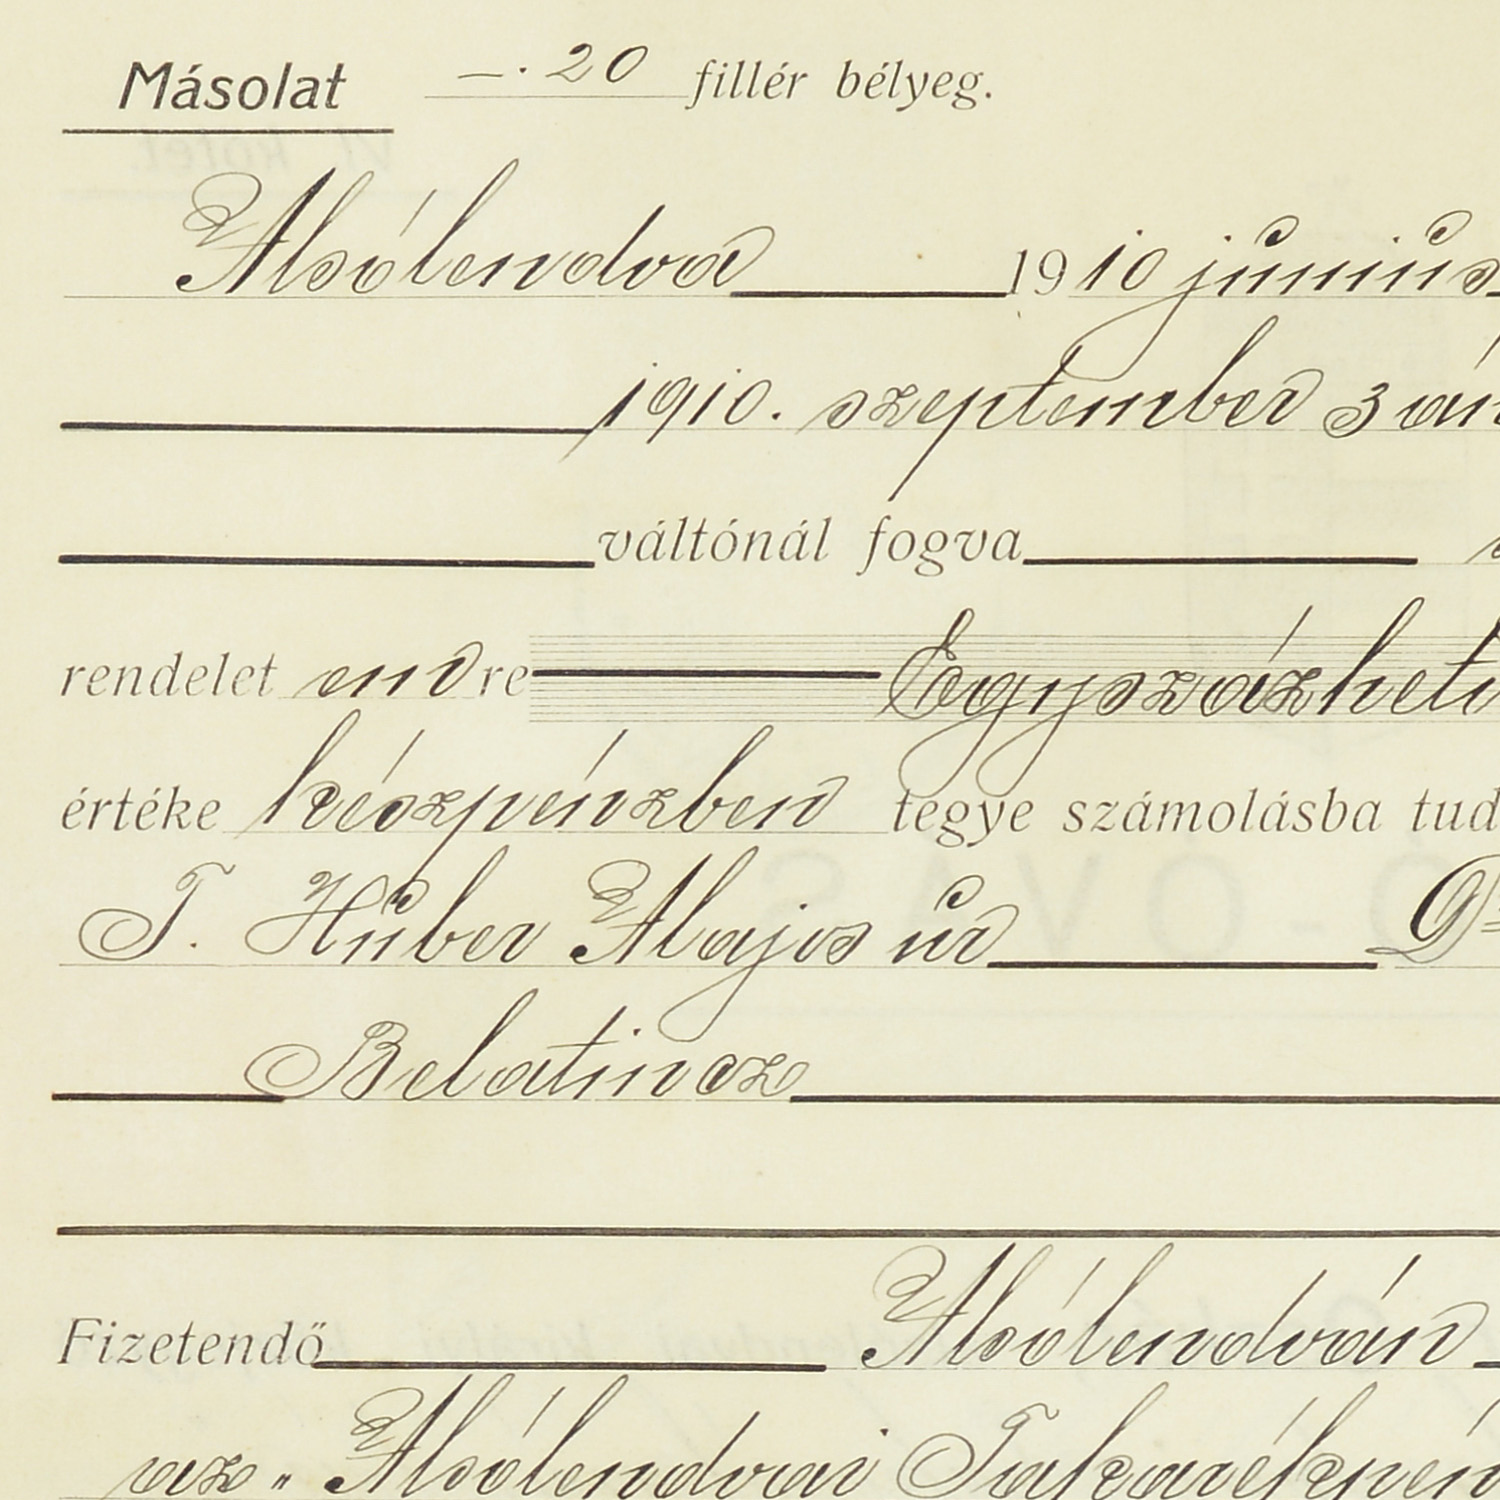 Másolat —.20 fillér bélyeg.
Alsólendva 1910 június
1910. szeptember 3 án
váltónál fogva
rendelet én re Egyszázhetv
értéke készpénzben tegye számolásba tud
T. Huber Alajos úr
Belatincz
Fizetendő Alsólendván
az „Alsólendvai Takarékpén